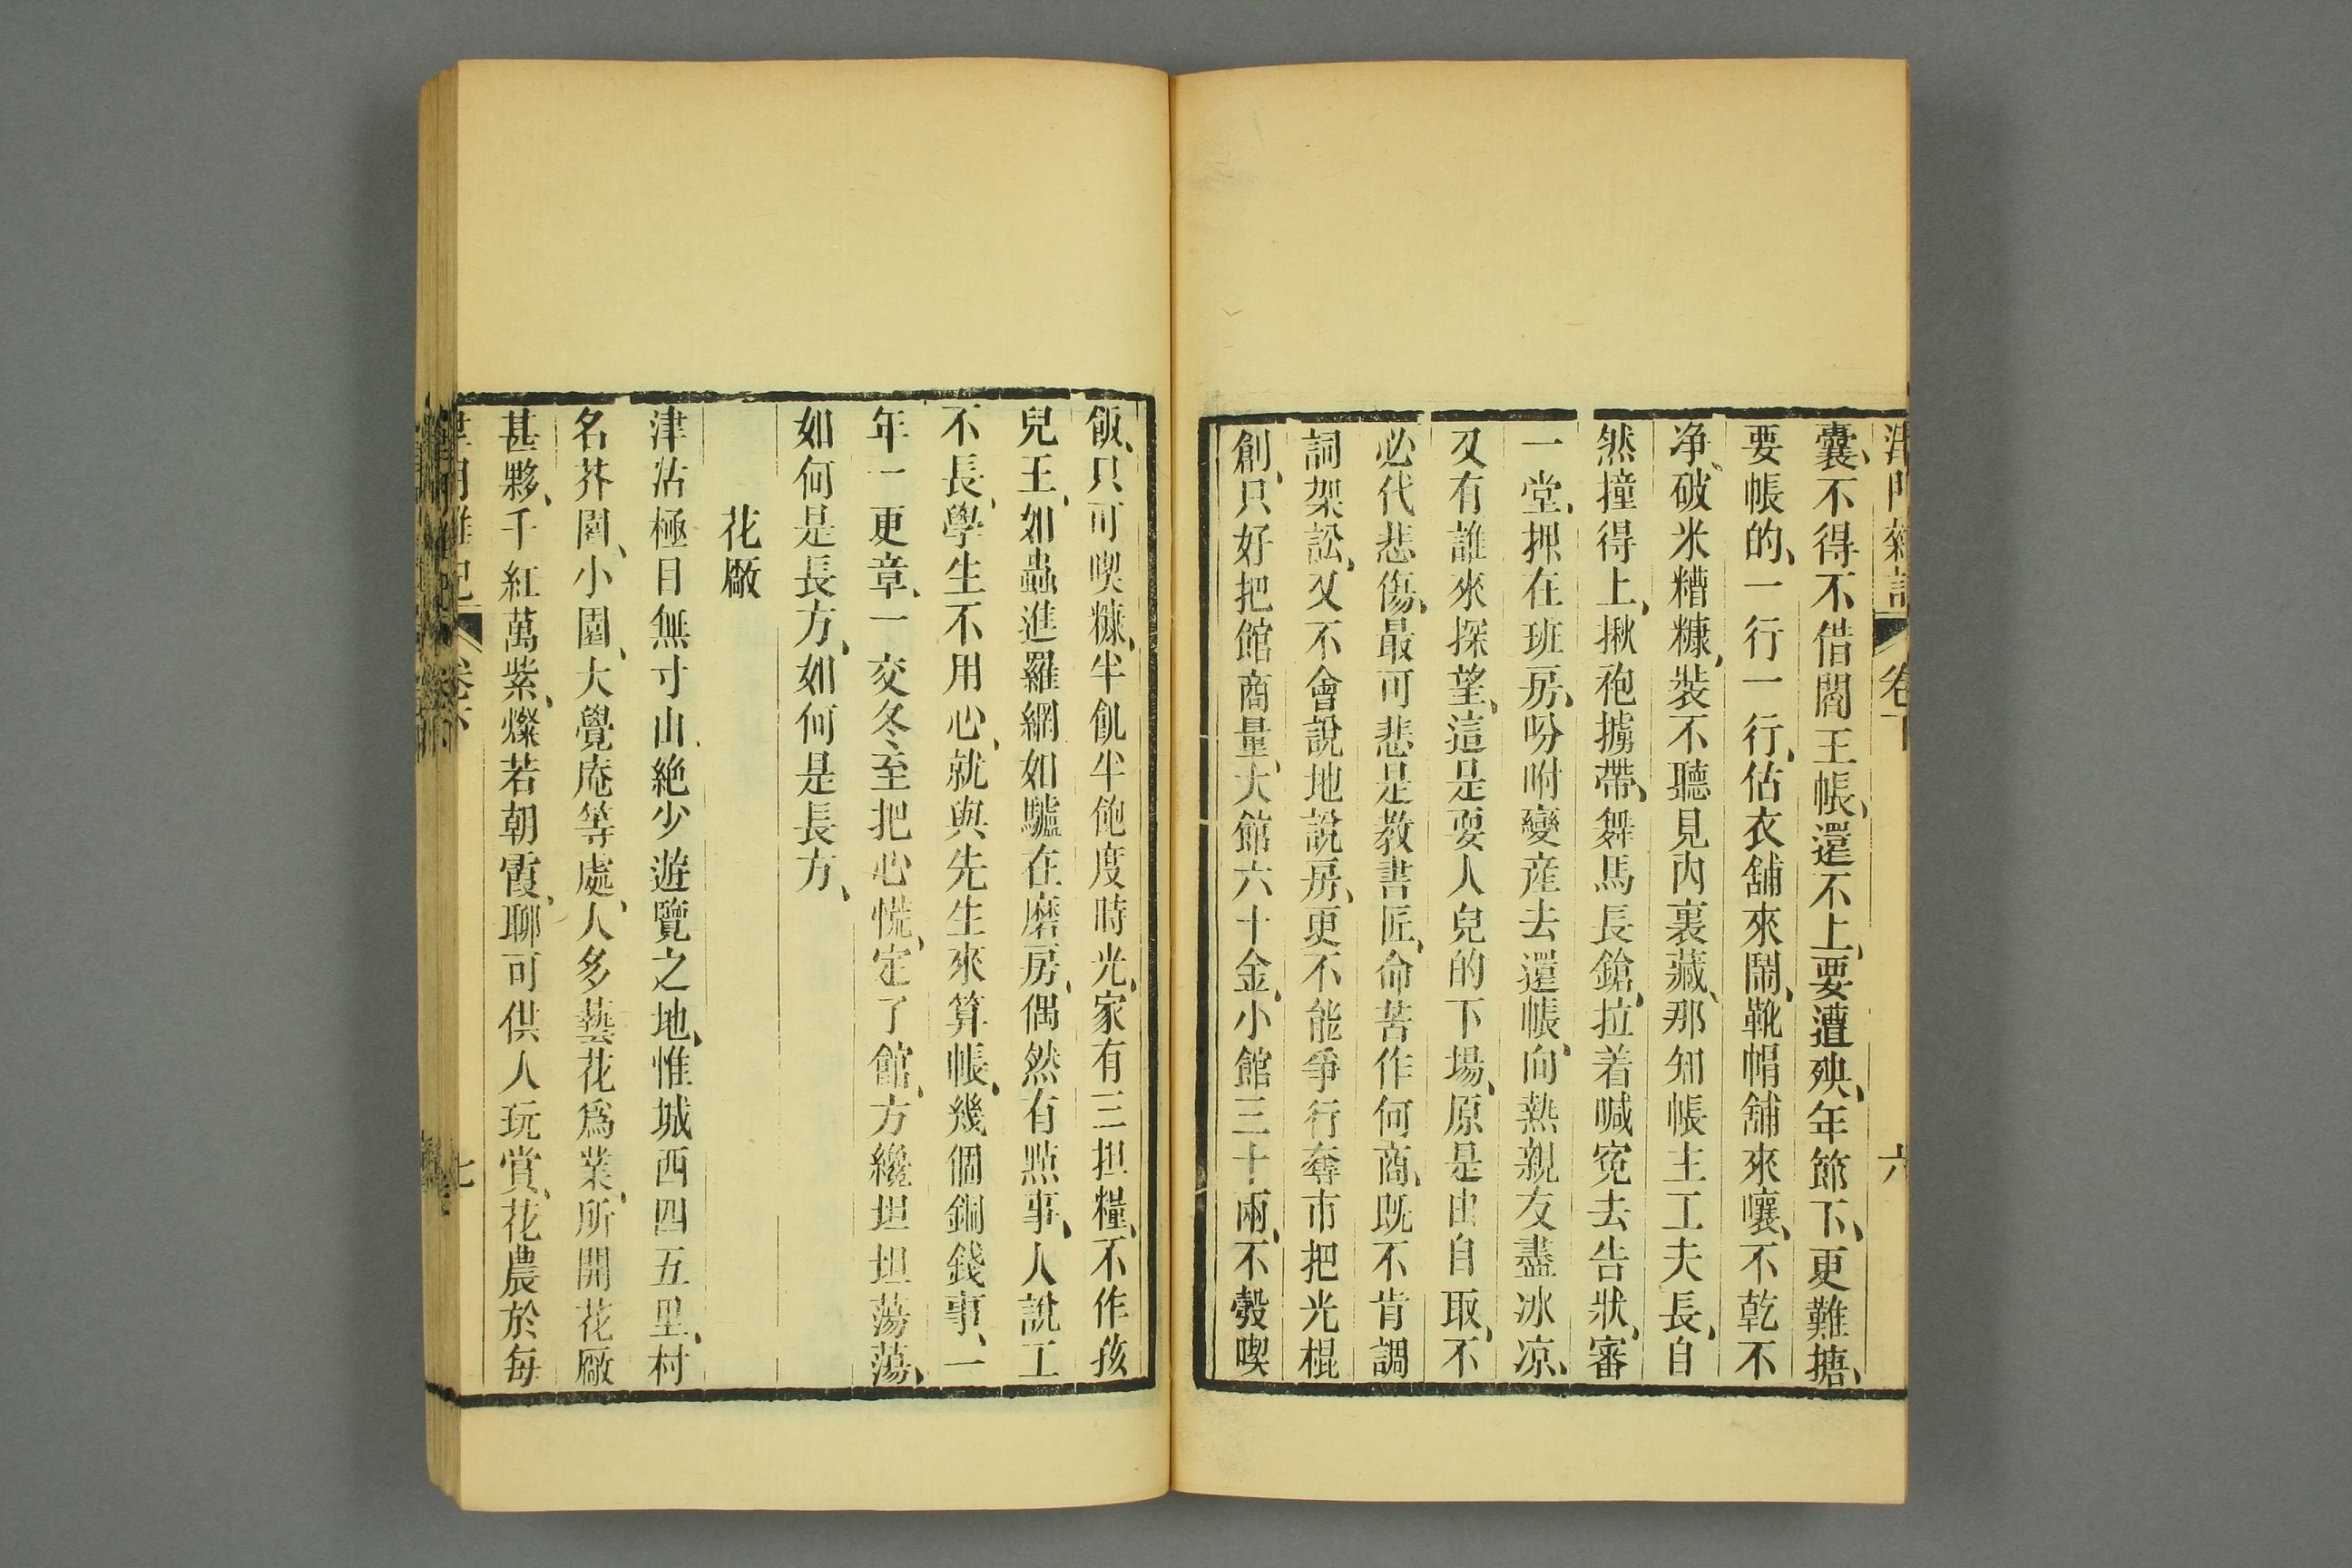 津門雜記 卷下 六
囊、不得不借閻王帳、還不上、要遭殃、年節下、更難搪、
要帳的、一行一行、估衣舖來鬧、靴帽舖來嚷、不乾不
净、破米糟糠、裝不聽見內裏藏、那知帳主工夫長、自
然撞得上、揪袍擄帶、舞馬長鎗、拉着喊冤去告狀、審
一堂、押在班房、吩咐變産去還帳、向熱親友盡冰凉、
又有誰來探望、這是耍人兒的下場、原是由自取、不
必代悲傷、最可悲是教書匠、命苦作何商、既不肯調
詞架訟、又不會說地說房、更不能爭行奪市把光棍
創、只好把館商量、大館六十金、小館三十兩、不彀喫
飯、只可喫糠、半飢半飽度時光、家有三担糧、不作孩
兒王、如蟲進羅網如驢在磨房、偶然有點事、人說工
不長、學生不用心、就與先生來算帳、幾個銅錢事、一
年一更章、一交冬至把心慌、定了館、方纔坦坦蕩蕩、
如何是長方、如何是長方、
花廠
津沽極目無寸山、絶少遊覽之地、惟城西四五里、村
名芥園、小園、大覺庵等處、人多藝花爲業、所開花廠
甚夥、千紅萬紫、燦若朝霞、聊可供人玩賞、花農於每
津門雜記 卷下 七